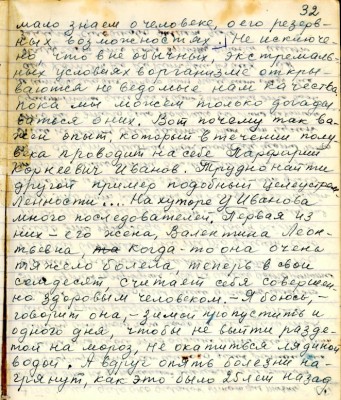 32
мало знаем о человеке, о его резерв-
ных возможностях. Не исключе-
но что в не обычных экстремаль-
ных условиях в организме откры-
ваются не ведомые нам качества
пока мы можем только догады
ваться о них. Вот почему так ва-
жен опыт, который в течении полу
века проводит на себе Парфирий
Корнеевич Иванов. Трудно найти
другой пример подобный целеустрем
ленности... На хуторе у Иванова
много последователей. Первая из
них - его жена, Валентина Леон-
тьевна, когда-то она очень
тяжело болела, теперь в свои
семдесят считает себя совершен-
но здоровым человеком. - Я боюсь, -
говорит она, - зимой пропустить и
одного дня, чтобы не выйти разде-
той на мороз, не окатиться лядиной
водой. А вдруг опять болезни на-
грянут, как это было 25 лет назад